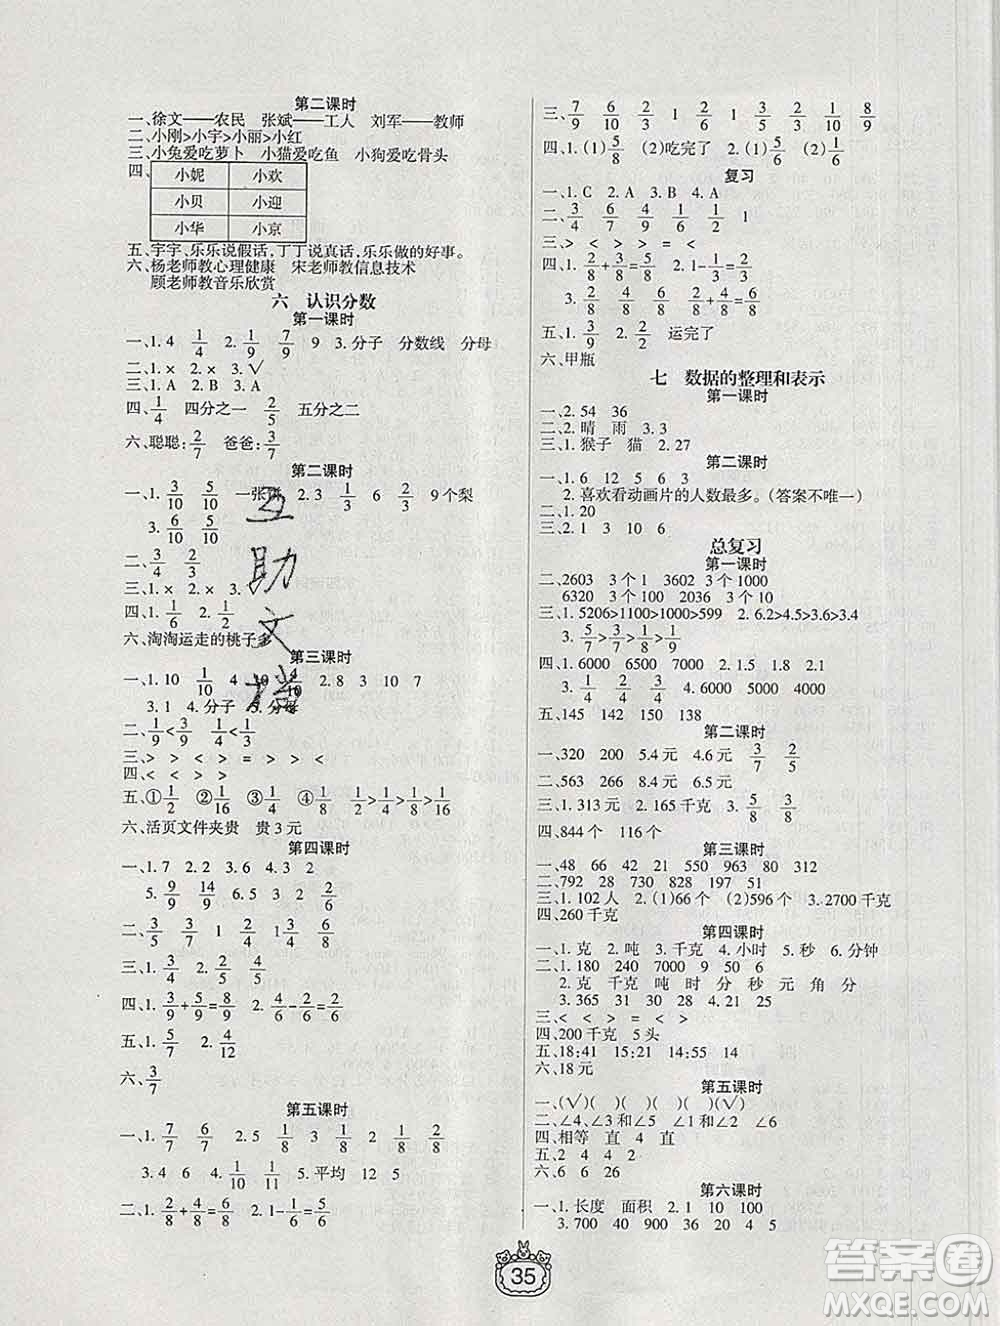 第二课时
一、徐文——农民 张斌——工人 刘军——教师
二、小刚>小宇>小丽>小红
三、小兔爱吃萝卜 小猫爱吃鱼 小狗爱吃骨头
四、
小妮 小欢
小贝 小迎
小华 小京
五、宇宇、乐乐说假话,丁丁说真话,乐乐做的好事。
六、杨老师教心理健康 宋老师教信息技术
顾老师教音乐欣赏
六 认识分数
第一课时
一、1. 4 1/4 2. 1/9 7/9 9 3. 分子 分数线 分母
二、1. × 2. × 3. √
三、1. A 2. B 3. A
四、1/4 四分之一 2/5 五分之二
六、聪聪:2/7 爸爸:3/7
第二课时
一、1. 3/10 5/10 一张 2. 3 1/3 6 2/6 9个梨
3. 6/10 5/10
二、3/4 2/3
三、1. × 2. × 3.
四、1. 1/6 2. 1/9
六、淘淘运走的桃子多
第三课时
一、1. 10 1/10 4 10 4/10 2. 8 3 10 7
3. 1 4. 分子 5. 分母
二、1/9<3/9 1/4<1/2
三、> > > > = > <
四、< < > >
五、①1/2 ②1/16 ③1/4 ④1/8 1/2>1/4>1/8>1/16
六、活页文件夹贵 贵3元
第四课时
一、1. 7 2. 2 3. 6 4. 3 2
5. 9/9 14/14 9 7 2/2
二、3/4 7/9 1 2/4 1/3 4/6
三、1. 3/4 2. 5/9
四、1. 3/9+5/9=8/9 2. 4/6-3/6=1/6
五、1. 5/7 2. 4/12
六、3/7
第五课时
一、1. 7/7 6/7 2. 8/8 3/8 1/2 1/8 1/9
3. 4 6 4. 1/10 1/11 5. 平均 12 5
二、1. 2/8+4/8=6/8 2. 1-1/6=5/6
三、7/9 6/9 2/4 1/8 1 1/2 1 8/9
四、1. (1)5/8 (2)吃完了 2. (1)5/6 (2)1/6
复习
一、1. C 2. A 3. B 4. A
二、3/4 6/7 1/8 2/4 1
三、> < > < = >
四、1. 1/5+3/5=4/5 2. 1-2/4=2/4
3. 5/8-3/8=2/8 2/8+2/8=4/8
五、1. 3/9 2. 2/2 运完了
六、甲瓶
七 数据的整理和表示
第一课时
一、2. 54 36
二、2. 晴 雨 3. 3
三、1. 猴子 猫 2. 27
第二课时
一、1. 6 12 5 6 3
2. 喜欢看动画片的人数最多。(答案不唯一)
二、1. 20
三、2. 1 3 10 6
总复习
第一课时
二、2603 3个1 3602 3个1000
6320 3个100 2036 3个10
三、1. 5206>1100>1000>599 2. 6.2>4.5>3.6>3.4
3. 8/9>5/9>3/9>1/9
四、1. 6000 6500 7000 2. 1 1.2 1.5
3. 1/4 2/4 3/4 4. 5000 5000 4000
五、145 142 150 138
第二课时
一、320 200 5.4元 4.6元 3/7 2/5
二、563 266 8.4元 6.5元
三、1. 313元 2. 165千克 3. 5/8
四、844个 116个
第三课时
一、48 66 42 550 963 80 312
二、792 28 730 58 408 7
三、1. 102人 2. (1)66个 (2)596个 3. 2700千克
四、260千克
第四课时
一、1. 克 2. 吨 3. 千克 4. 小时 5. 秒 6. 分钟
二、1. 180 240 7000 9 50 6
2. 克 千克 吨 时 分 秒 元 角 分
3. 20:25 4. 4 29 5. 21:00
三、< < > = < >
四、200千克 5头
五、18:41 15:21 14:55 14
六、18元
第五课时
一、(√)( )( )( )(√)
二、∠4、∠3和∠5 ∠2 ∠1和∠6
四、相等 直 4 直
五、2 4 4 2
六、6
第六课时
一、1. 长度 面积 2. 1 10 100
3. 700 40 900 36 20 4 5
互
助
文
档
35
答案圈
MXQE.COM